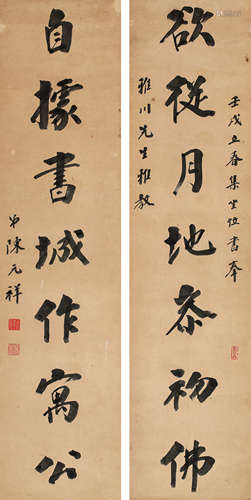 欲從月地恭初佛
壬戌立春集坐位書奉
雅川先生雅教
自據書城作寓公
弟陳元祥